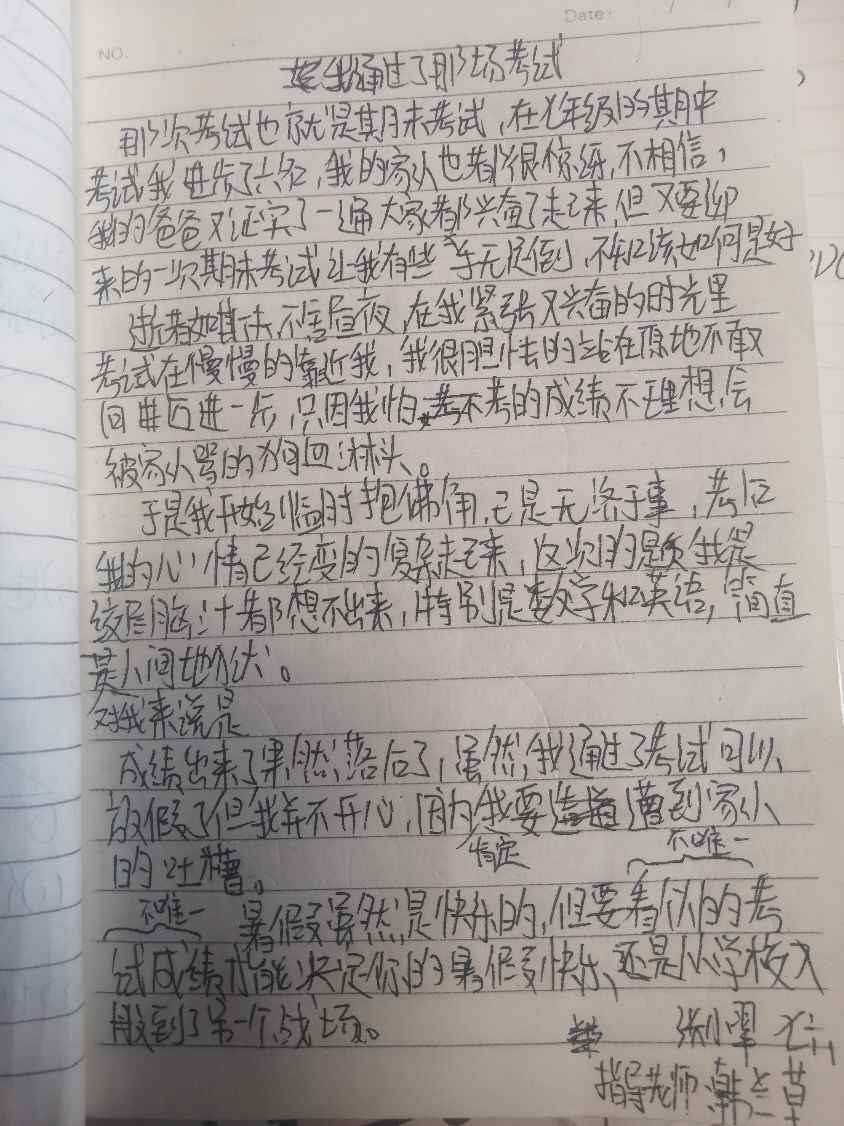 NO.
Date:
我通过了那场考试
那次考试也就是期末考试,在七年级的期中
考试我进步了六名,我的家人也都很惊讶,不相信,
我的爸爸又证实了一遍大家都兴奋了起来,但又要迎
来的一次期末考试让我有些手无足倒,不知该如何是好
逝者如其夫,不舍昼夜,在我紧张又兴奋的时光里
考试在慢慢的靠近我,我很胆怯的站在原地不敢
向进迈进一步,只因我怕不考的成绩不理想,会
被家人骂的狗血淋头。
于是我开始临时抱佛脚,已是无济于事,考后
我的心情已经变的复杂起来,这次的题我是
绞尽脑汁都想不出来,特别是数学和英语,简直
是人间地狱。
对我来说是
成绩出来了果然落后了,虽然我通过了考试可以
放假了但我并不开心,因为我要遭到家人
肯定 不唯一
的吐槽。
不唯一
暑假虽然是快乐的,但要看你的考
试成绩才能决定你的暑假快乐、还是从学校入
般到了另一个战场。
张小翠 七
指导老师 韩兰草